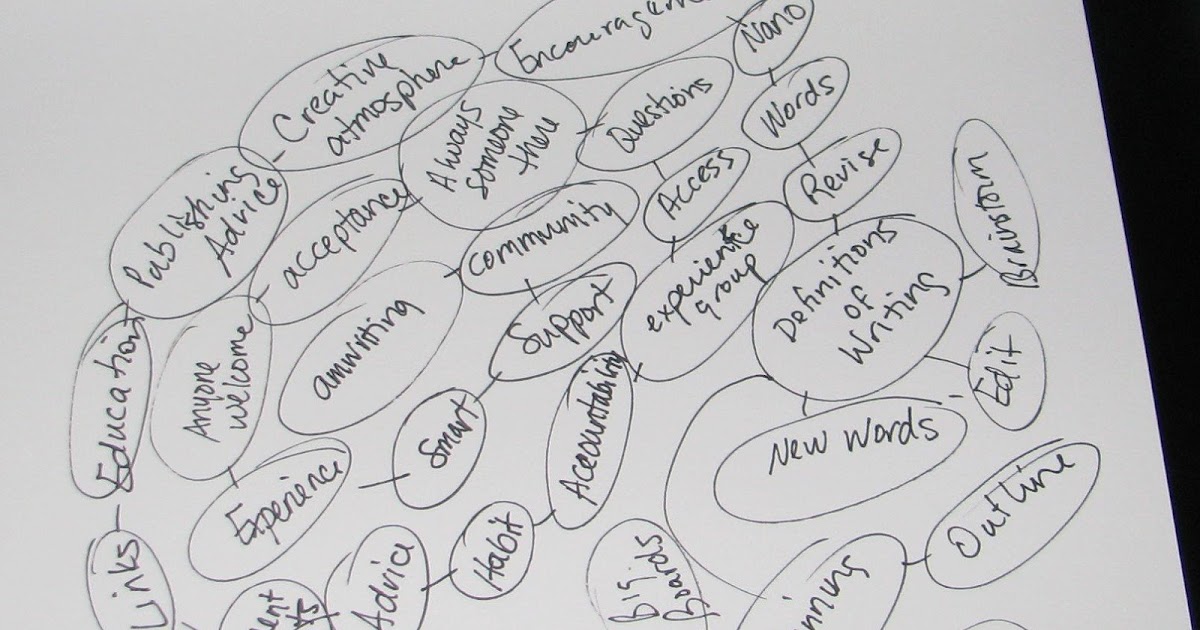 Encouragem
Nano
Creative
atmosphere
Always
someone
there
Questions
Words
Publishing
Advice
acceptance
community
Access
Revise
Brainstorm
Education
Anyone
welcome
amwriting
Support
experience
group
Definitions
of
Writing
Edit
Experience
Smart
Accountability
New Words
Outline
Links
Advice
Habit
Big
Boards